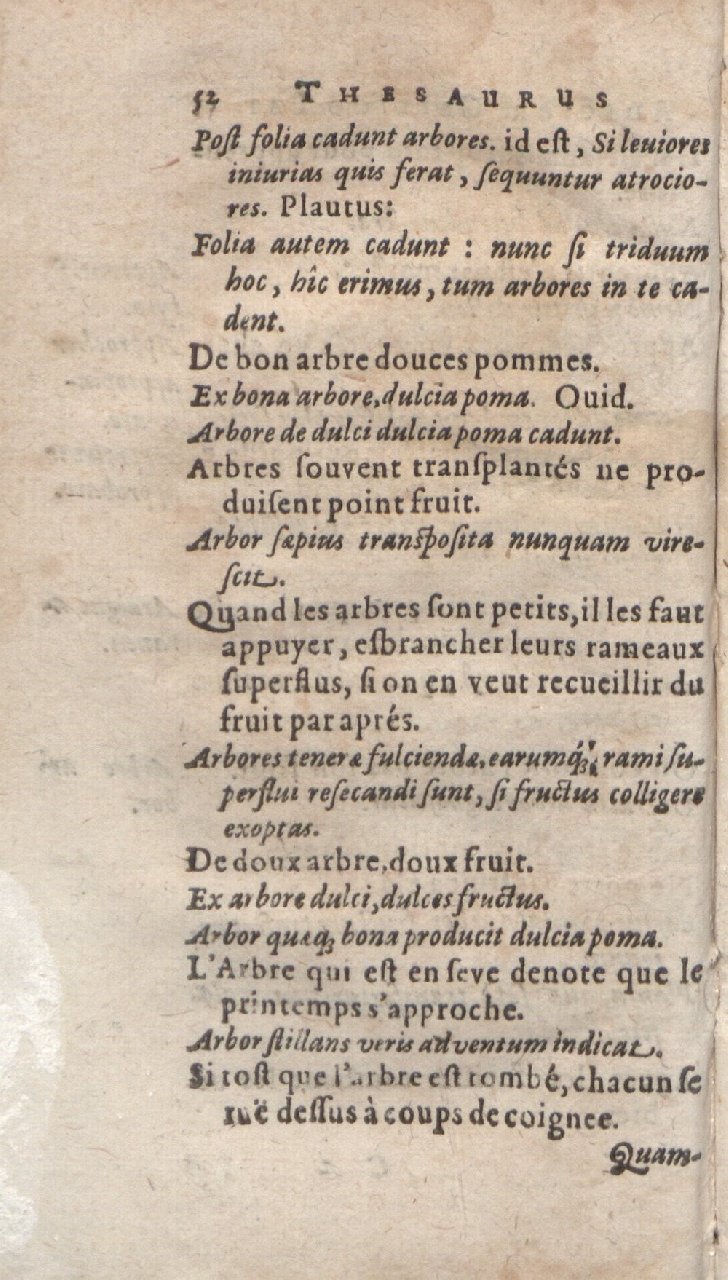 52 THESAURUS
Post folia cadunt arbores. id est, Si leuiores
iniurias quis ferat, sequuntur atrocio-
res. Plautus:
Folia autem cadunt : nunc si triduum
hoc, hîc erimus, tum arbores in te ca-
dent.
De bon arbre douces pommes.
Ex bona arbore, dulcia poma. Ouid.
Arbore de dulci dulcia poma cadunt.
Arbres souvent transplantés ne pro-
duisent point fruit.
Arbor sæpius transposita nunquam vire-
scit.
Quand les arbres sont petits, il les faut
appuyer, esbrancher leurs rameaux
superflus, si on en veut recueillir du
fruit par aprés.
Arbores teneræ fulciendæ, earumq́; rami su-
perflui resecandi sunt, si fructus colligere
exoptas.
De doux arbre, doux fruit.
Ex arbore dulci, dulces fructus.
Arbor quæq; bona producit dulcia poma.
L'Arbre qui est en seve denote que le
printemps s'approche.
Arbor stillans veris adventum indicat.
Si tost que l'arbre est tombé, chacun se
ruë dessus à coups de coignee.
Quam-